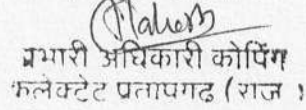 प्रभारी अधिकारी कोपिंग
कलेक्टेट प्रतापगढ (राज